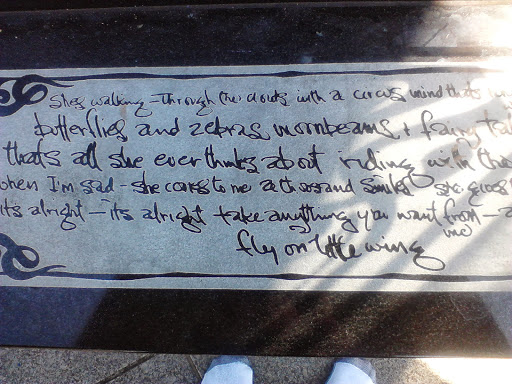 she's walking - through the clouds with a circus mind thats
butterflies and zebras moonbeams + fairy tal
thats all she ever thinks about riding with the
when I'm sad - she comes to me a thousand smiles she gives
its alright - its alright take anything you want from - a
me
fly on little wing